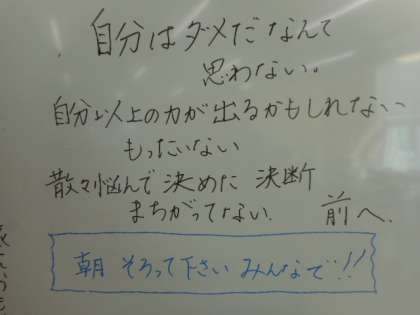 自分はダメだなんて
思わない。
自分以上の力が出るかもしれない
もったいない
散々悩んで決めた 決断
まちがってない. 前へ.
朝 そろって下さい みんなで!!